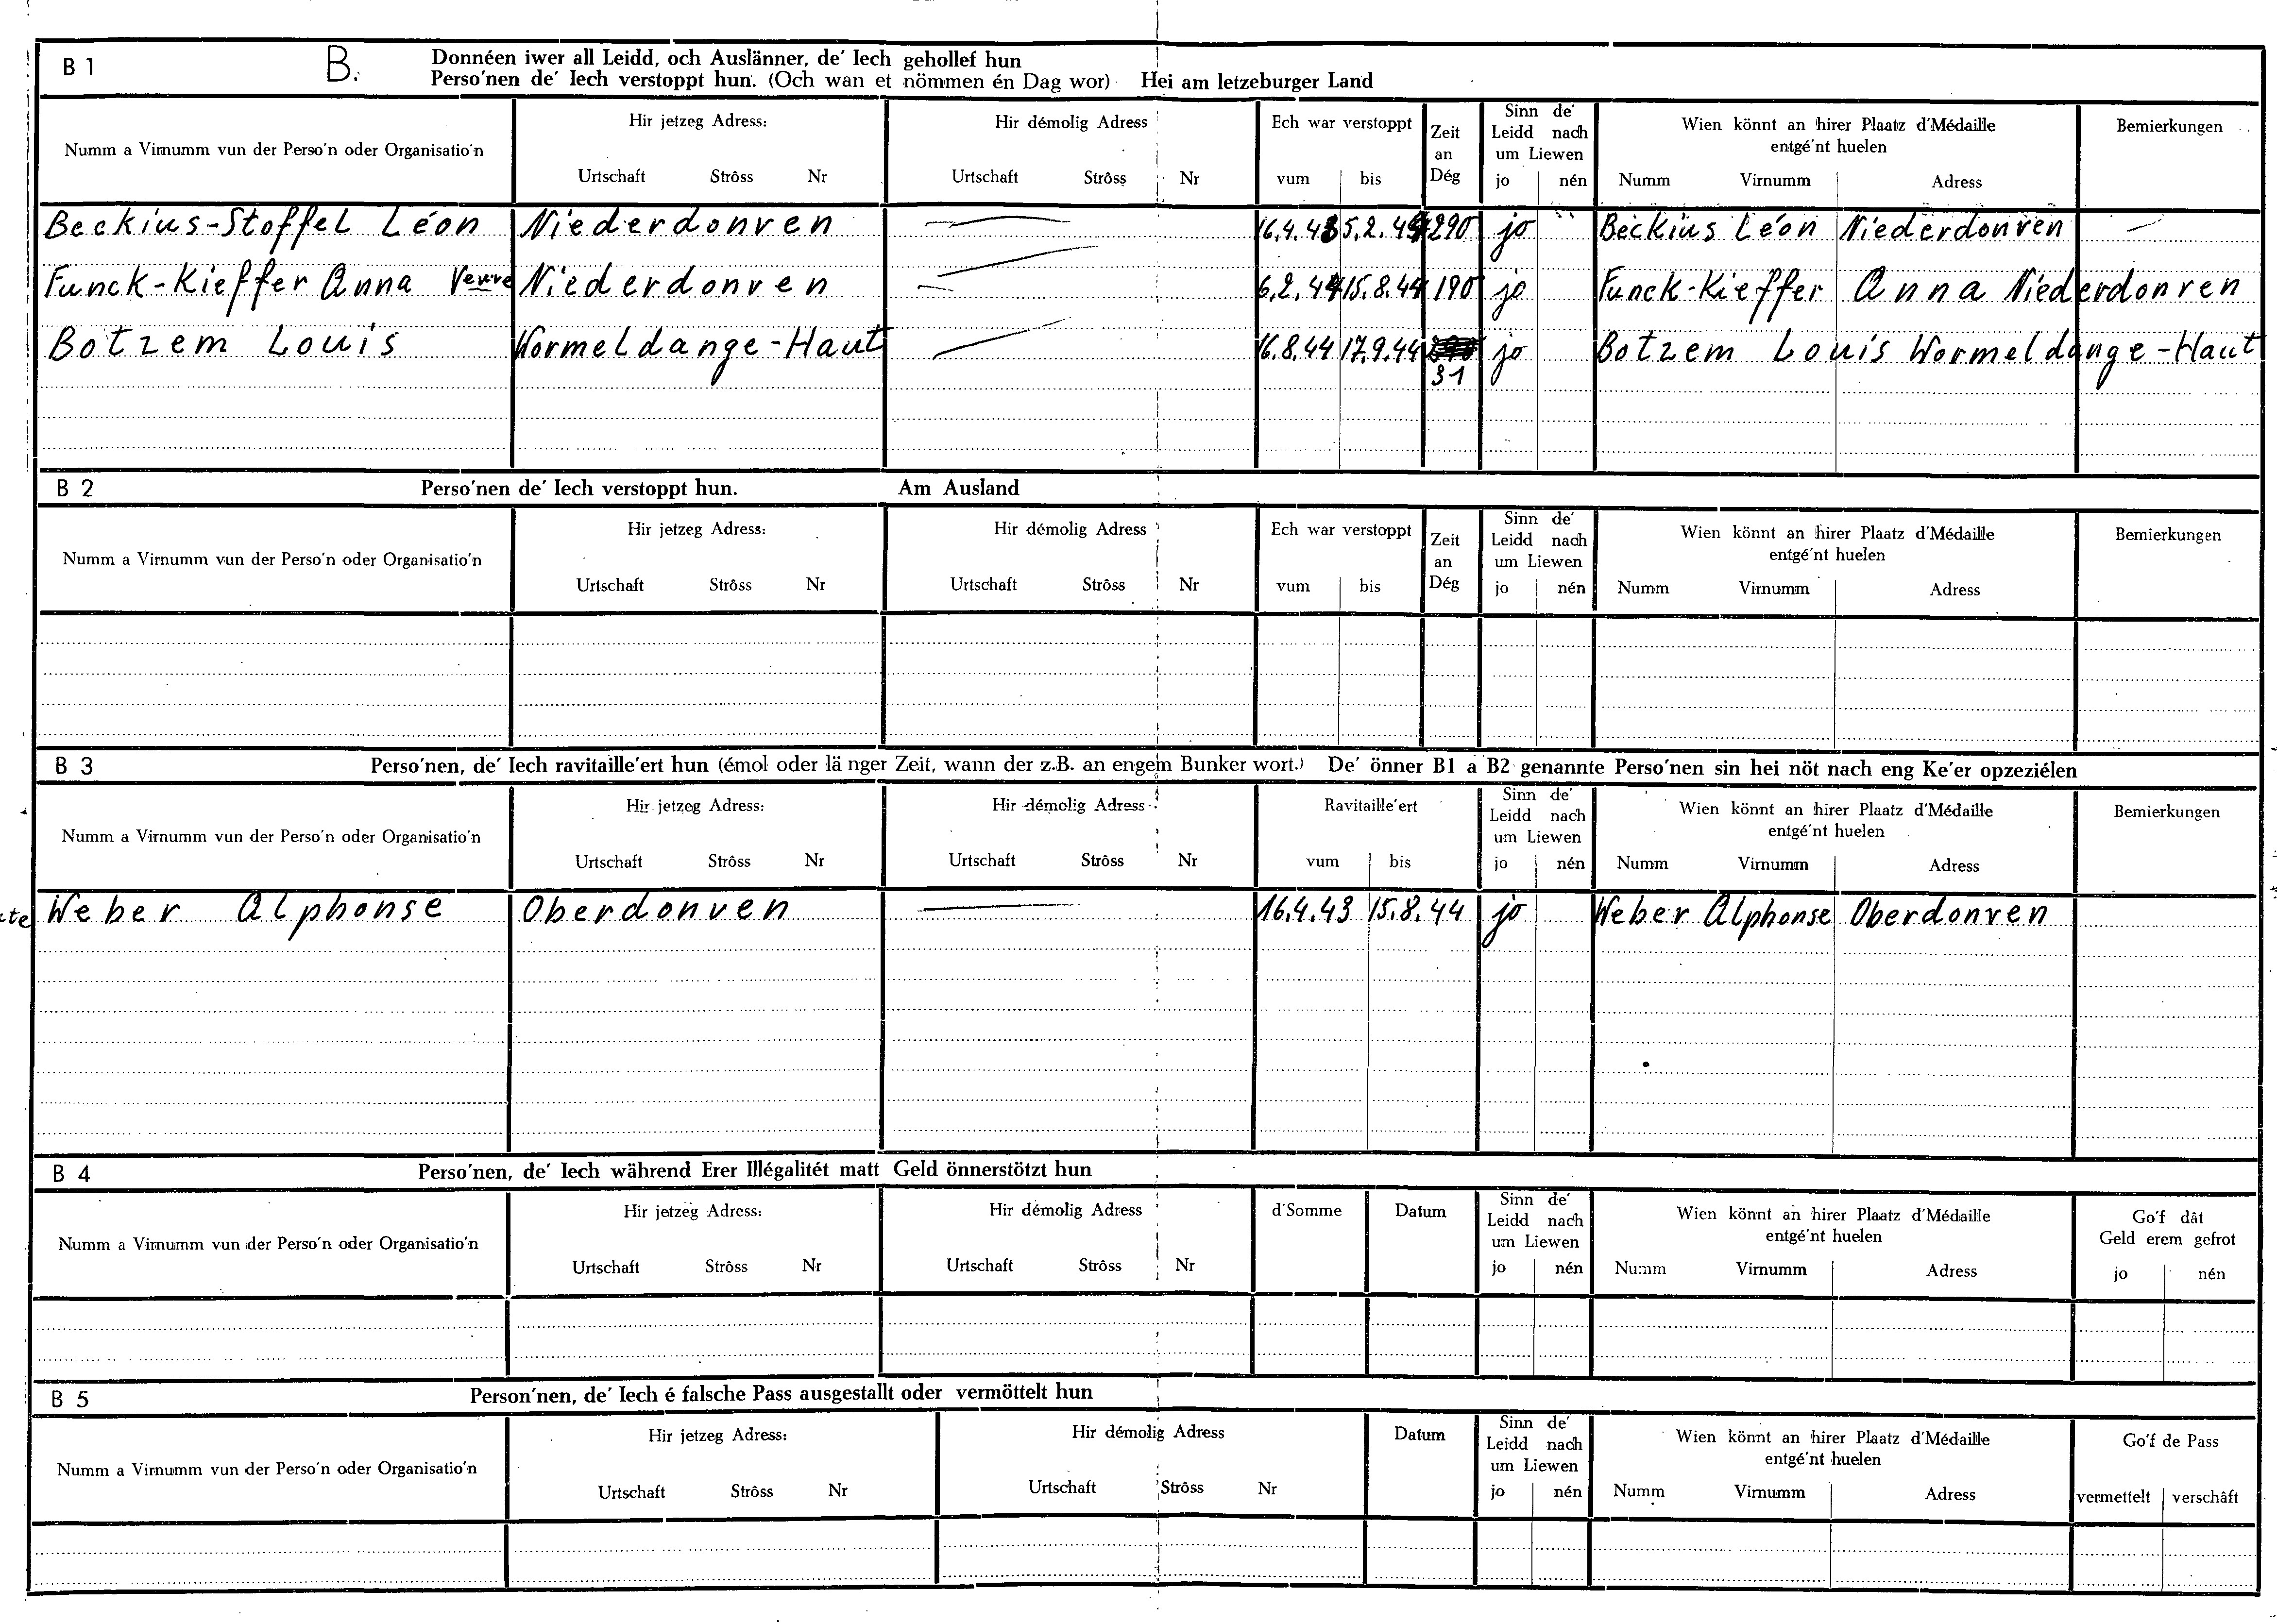 B 1 B. Donnéen iwer all Leidd, och Auslänner, de' Iech gehollef hun
Perso'nen de' Iech verstoppt hun. (Och wan et nömmen én Dag wor) Hei am letzeburger Land
Numm a Virnumm vun der Perso'n oder Organisatio'n
Hir jetzeg Adress:
Urtschaft Strôss Nr
Hir démolig Adress
Urtschaft Strôss Nr
Ech war verstoppt
vum bis
Zeit
an
Dég
Sinn de'
Leidd nach
um Liewen
jo nén
Wien könnt an hirer Plaatz d'Médaille
entgé'nt huelen
Numm Virnumm Adress
Bemierkungen
Beckius-Stoffel Léon Niederdonven 16.4.43 5.2.44 290 jo Beckius Léon Niederdonven
Funck-Kieffer Anna Veuve Niederdonven 6.2.44 15.8.44 190 jo Funck-Kieffer Anna Niederdonven
Botzem Louis Wormeldange-Haut 16.8.44 17.9.44 jo Botzem Louis Wormeldange-Haut
31
B 2 Perso'nen de' Iech verstoppt hun. Am Ausland
Numm a Virnumm vun der Perso'n oder Organisatio'n
Hir jetzeg Adress:
Urtschaft Strôss Nr
Hir démolig Adress
Urtschaft Strôss Nr
Ech war verstoppt
vum bis
Zeit
an
Dég
Sinn de'
Leidd nach
um Liewen
jo nén
Wien könnt an hirer Plaatz d'Médaille
entgé'nt huelen
Numm Virnumm Adress
Bemierkungen
B 3 Perso'nen, de' Iech ravitaille'ert hun (émol oder länger Zeit, wann der z.B. an engem Bunker wort.) De' önner B1 a B2 genannte Perso'nen sin hei nöt nach eng Ke'er opzeziélen
Numm a Virnumm vun der Perso'n oder Organisatio'n
Hir jetzeg Adress:
Urtschaft Strôss Nr
Hir démolig Adress
Urtschaft Strôss Nr
Ravitaille'ert
vum bis
Sinn de'
Leidd nach
um Liewen
jo nén
Wien könnt an hirer Plaatz d'Médaille
entgé'nt huelen
Numm Virnumm Adress
Bemierkungen
Weber Alphonse Oberdonven 16.4.43 15.8.44 jo Weber Alphonse Oberdonven
B 4 Perso'nen, de' Iech während Erer Illégalitét matt Geld önnerstötzt hun
Numm a Virnumm vun der Perso'n oder Organisatio'n
Hir jetzeg Adress:
Urtschaft Strôss Nr
Hir démolig Adress
Urtschaft Strôss Nr
d'Somme
Datum
Sinn de'
Leidd nach
um Liewen
jo nén
Wien könnt an hirer Plaatz d'Médaille
entgé'nt huelen
Numm Virnumm Adress
Go'f dât
Geld erem gefrot
jo nén
B 5 Person'nen, de' Iech é falsche Pass ausgestallt oder vermöttelt hun
Numm a Virnumm vun der Perso'n oder Organisatio'n
Hir jetzeg Adress:
Urtschaft Strôss Nr
Hir démolig Adress
Urtschaft Strôss Nr
Datum
Sinn de'
Leidd nach
um Liewen
jo nén
Wien könnt an hirer Plaatz d'Médaille
entgé'nt huelen
Numm Virnumm Adress
Go'f de Pass
vermettelt verschâft